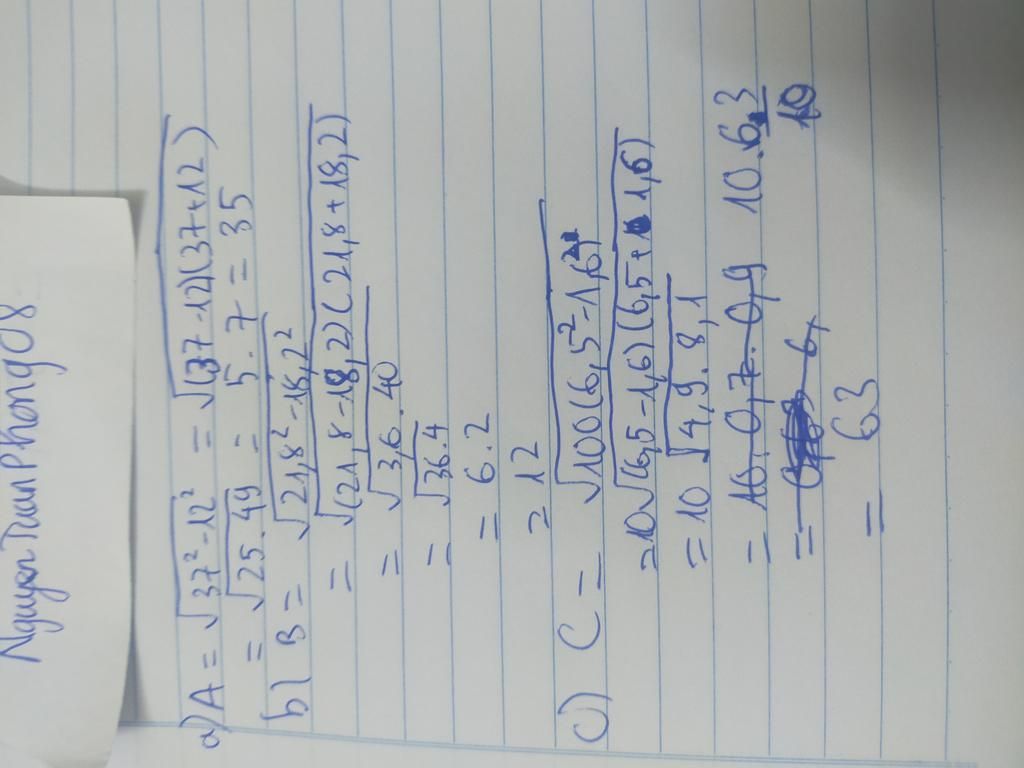 Nguyen Tuan Phong 08
a) A = √37² - 12² = √(37 - 12)(37 + 12)
= √25 . 49 = 5 . 7 = 35
b) B = √21,8² - 18,2²
= √(21,8 - 18,2)(21,8 + 18,2)
= √3,6 . 40
= √36 . 4
= 6 . 2
= 12
c) C = √100(6,5² - 1,6²)
= 10√(6,5 - 1,6)(6,5 + 1,6)
= 10 √4,9 . 8,1
= 10 . 0,7 . 0,9 10 . 6,3
= 6, 10
= 63